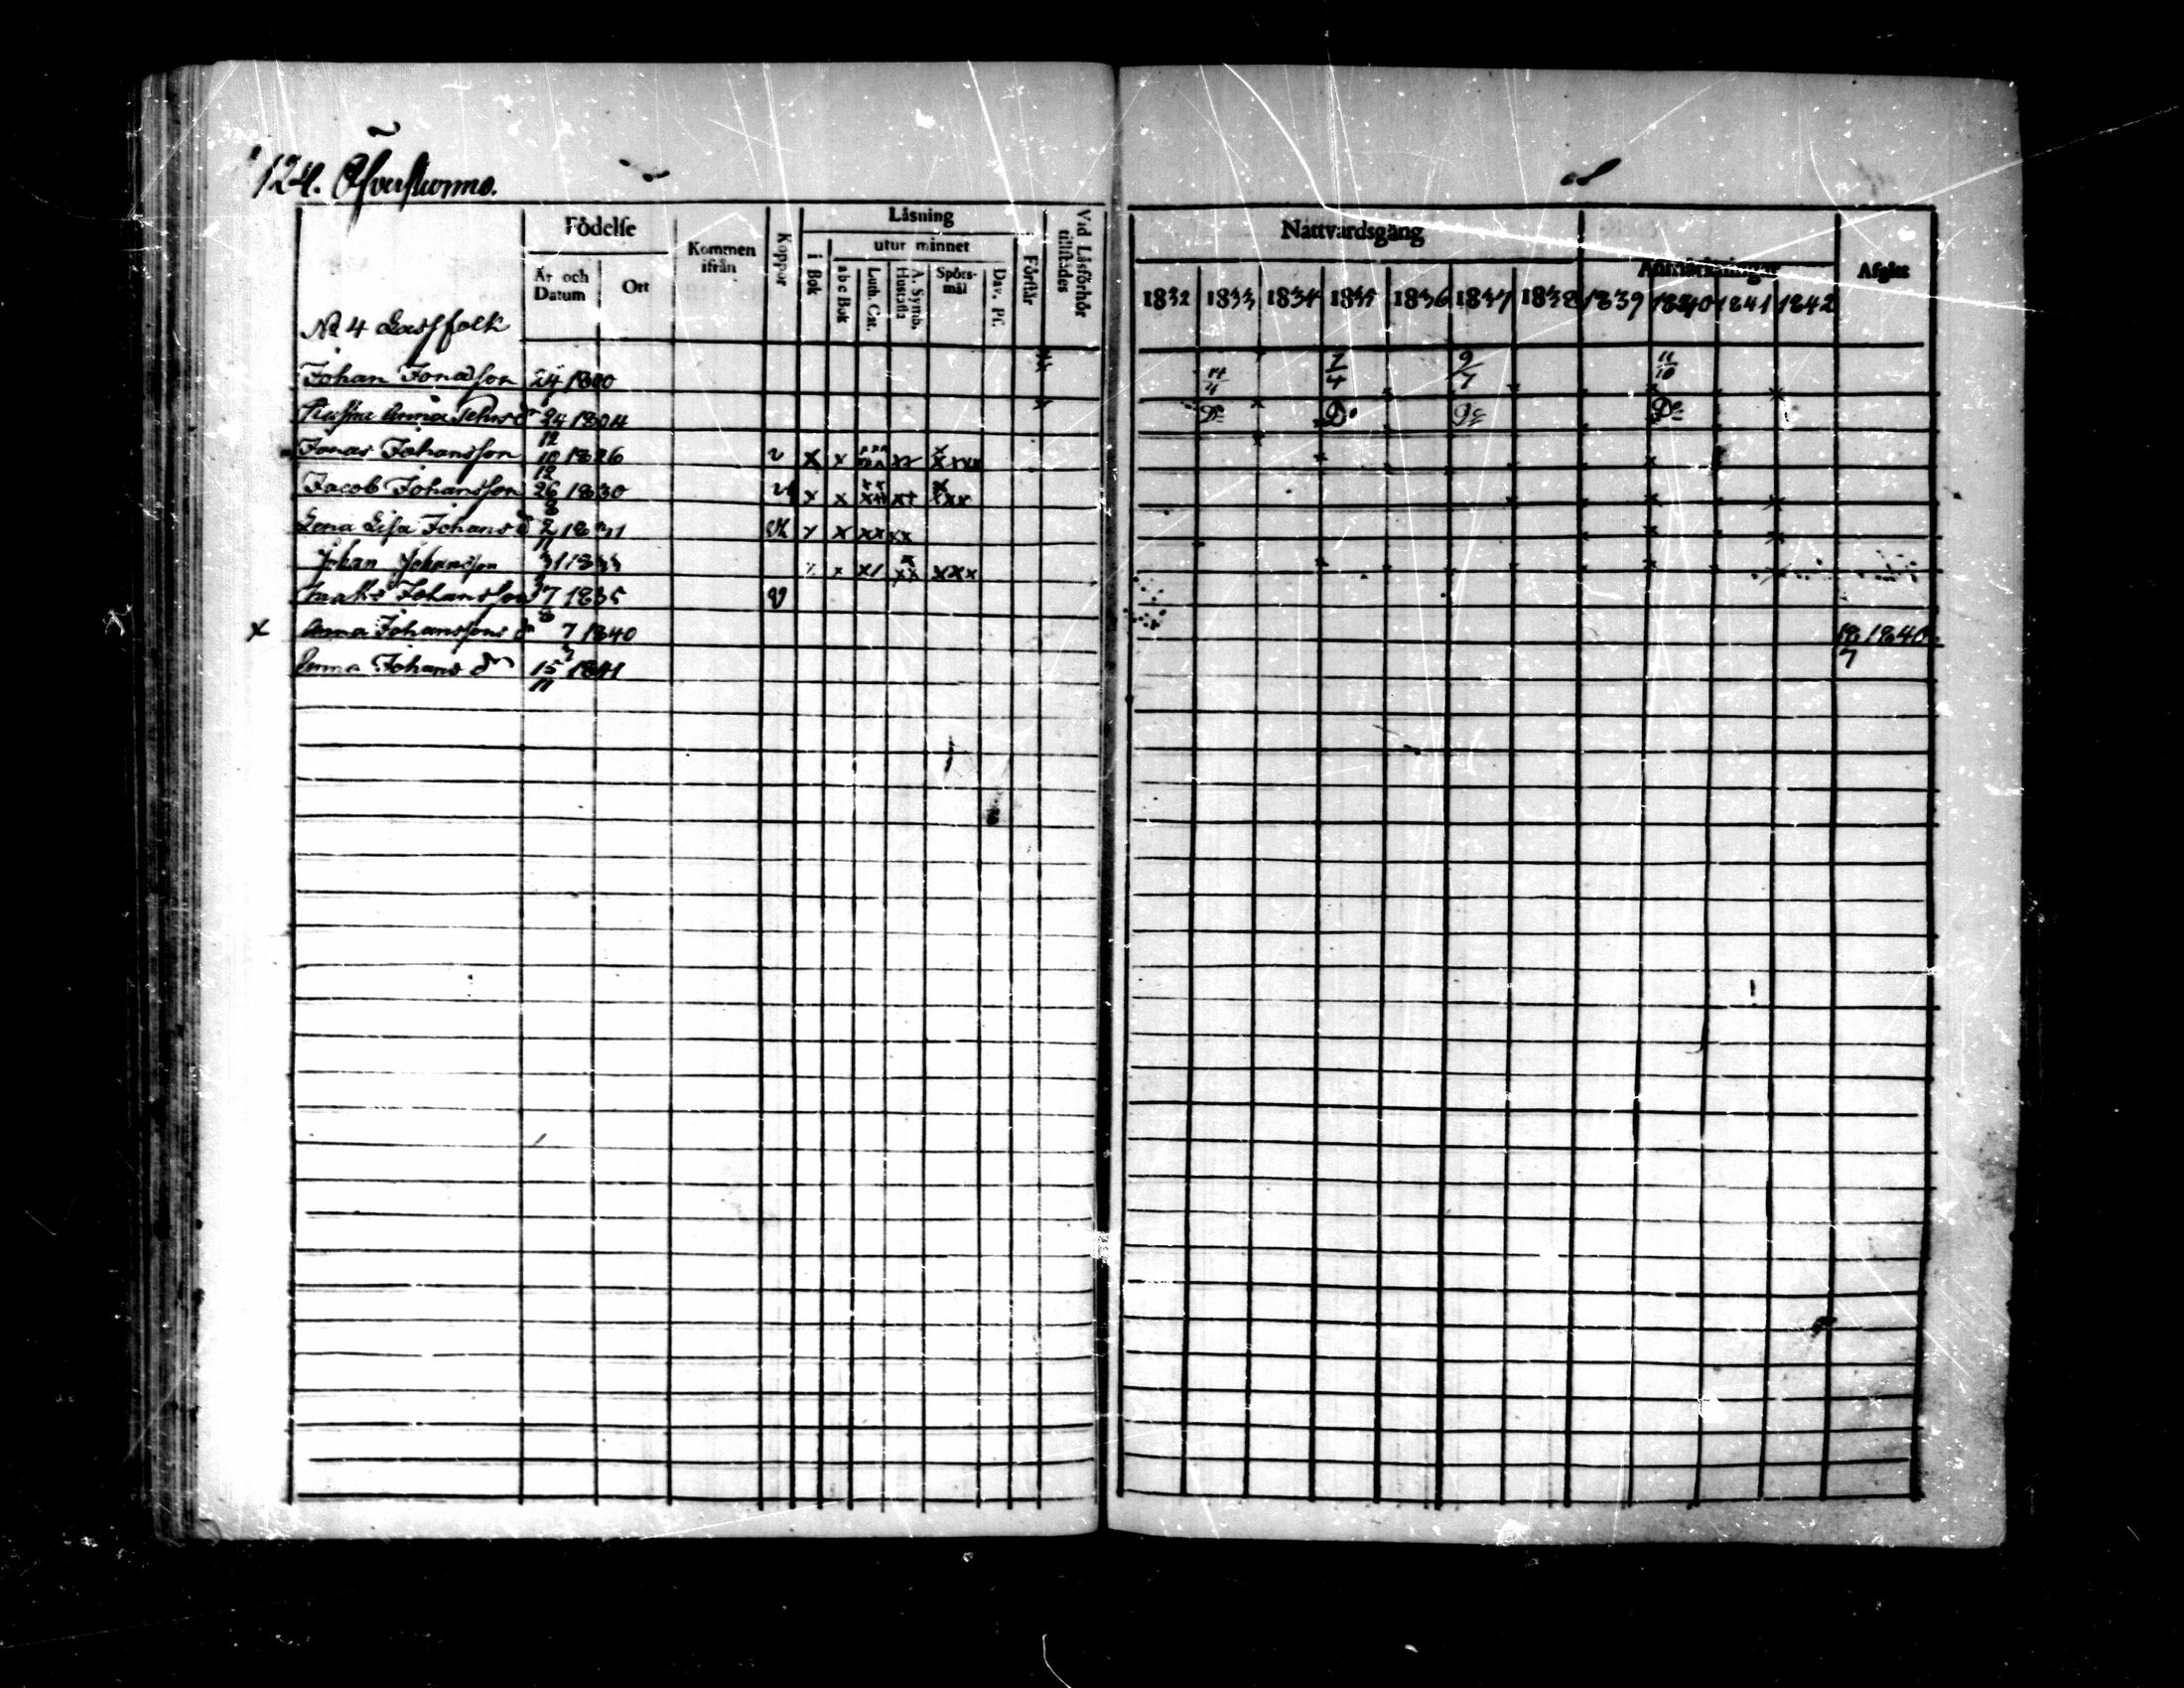 124.
Födelse
Kommen ifrån
Koppor
Läsning
i Bok
utur minnet
Förstår
Vid Läsförhör tillstädes
År och Datum
Ort
a b c Bok
Luth. Cat.
A. Symb. Hustafla
Spörs-mål
Dav. Ps.
Nattvardsgång
Anmärkningar
Afgått
1832 1833 1834 1835 1836 1837 1838 1839 1840 1841 1842
No 4
Johan Jonasson 24 1800 4/4 7/4 9/7 11/10
Anna 24 1804 Do Do Do Do
12
Jonas Johansson 10 1826 v x x xx xxxx
12
Jacob Johansson 26 1830 v x x xx xxx
8
Lena Lisa Johans dr 2 1831 x x xx xx
11
Johan Johansson 31 1833 x xx xxx
Johansson 7 1835 v
8
x Anna Johanssons dr 7 1840 18 1840
7
7
Anna Johans dr 15 1841
11